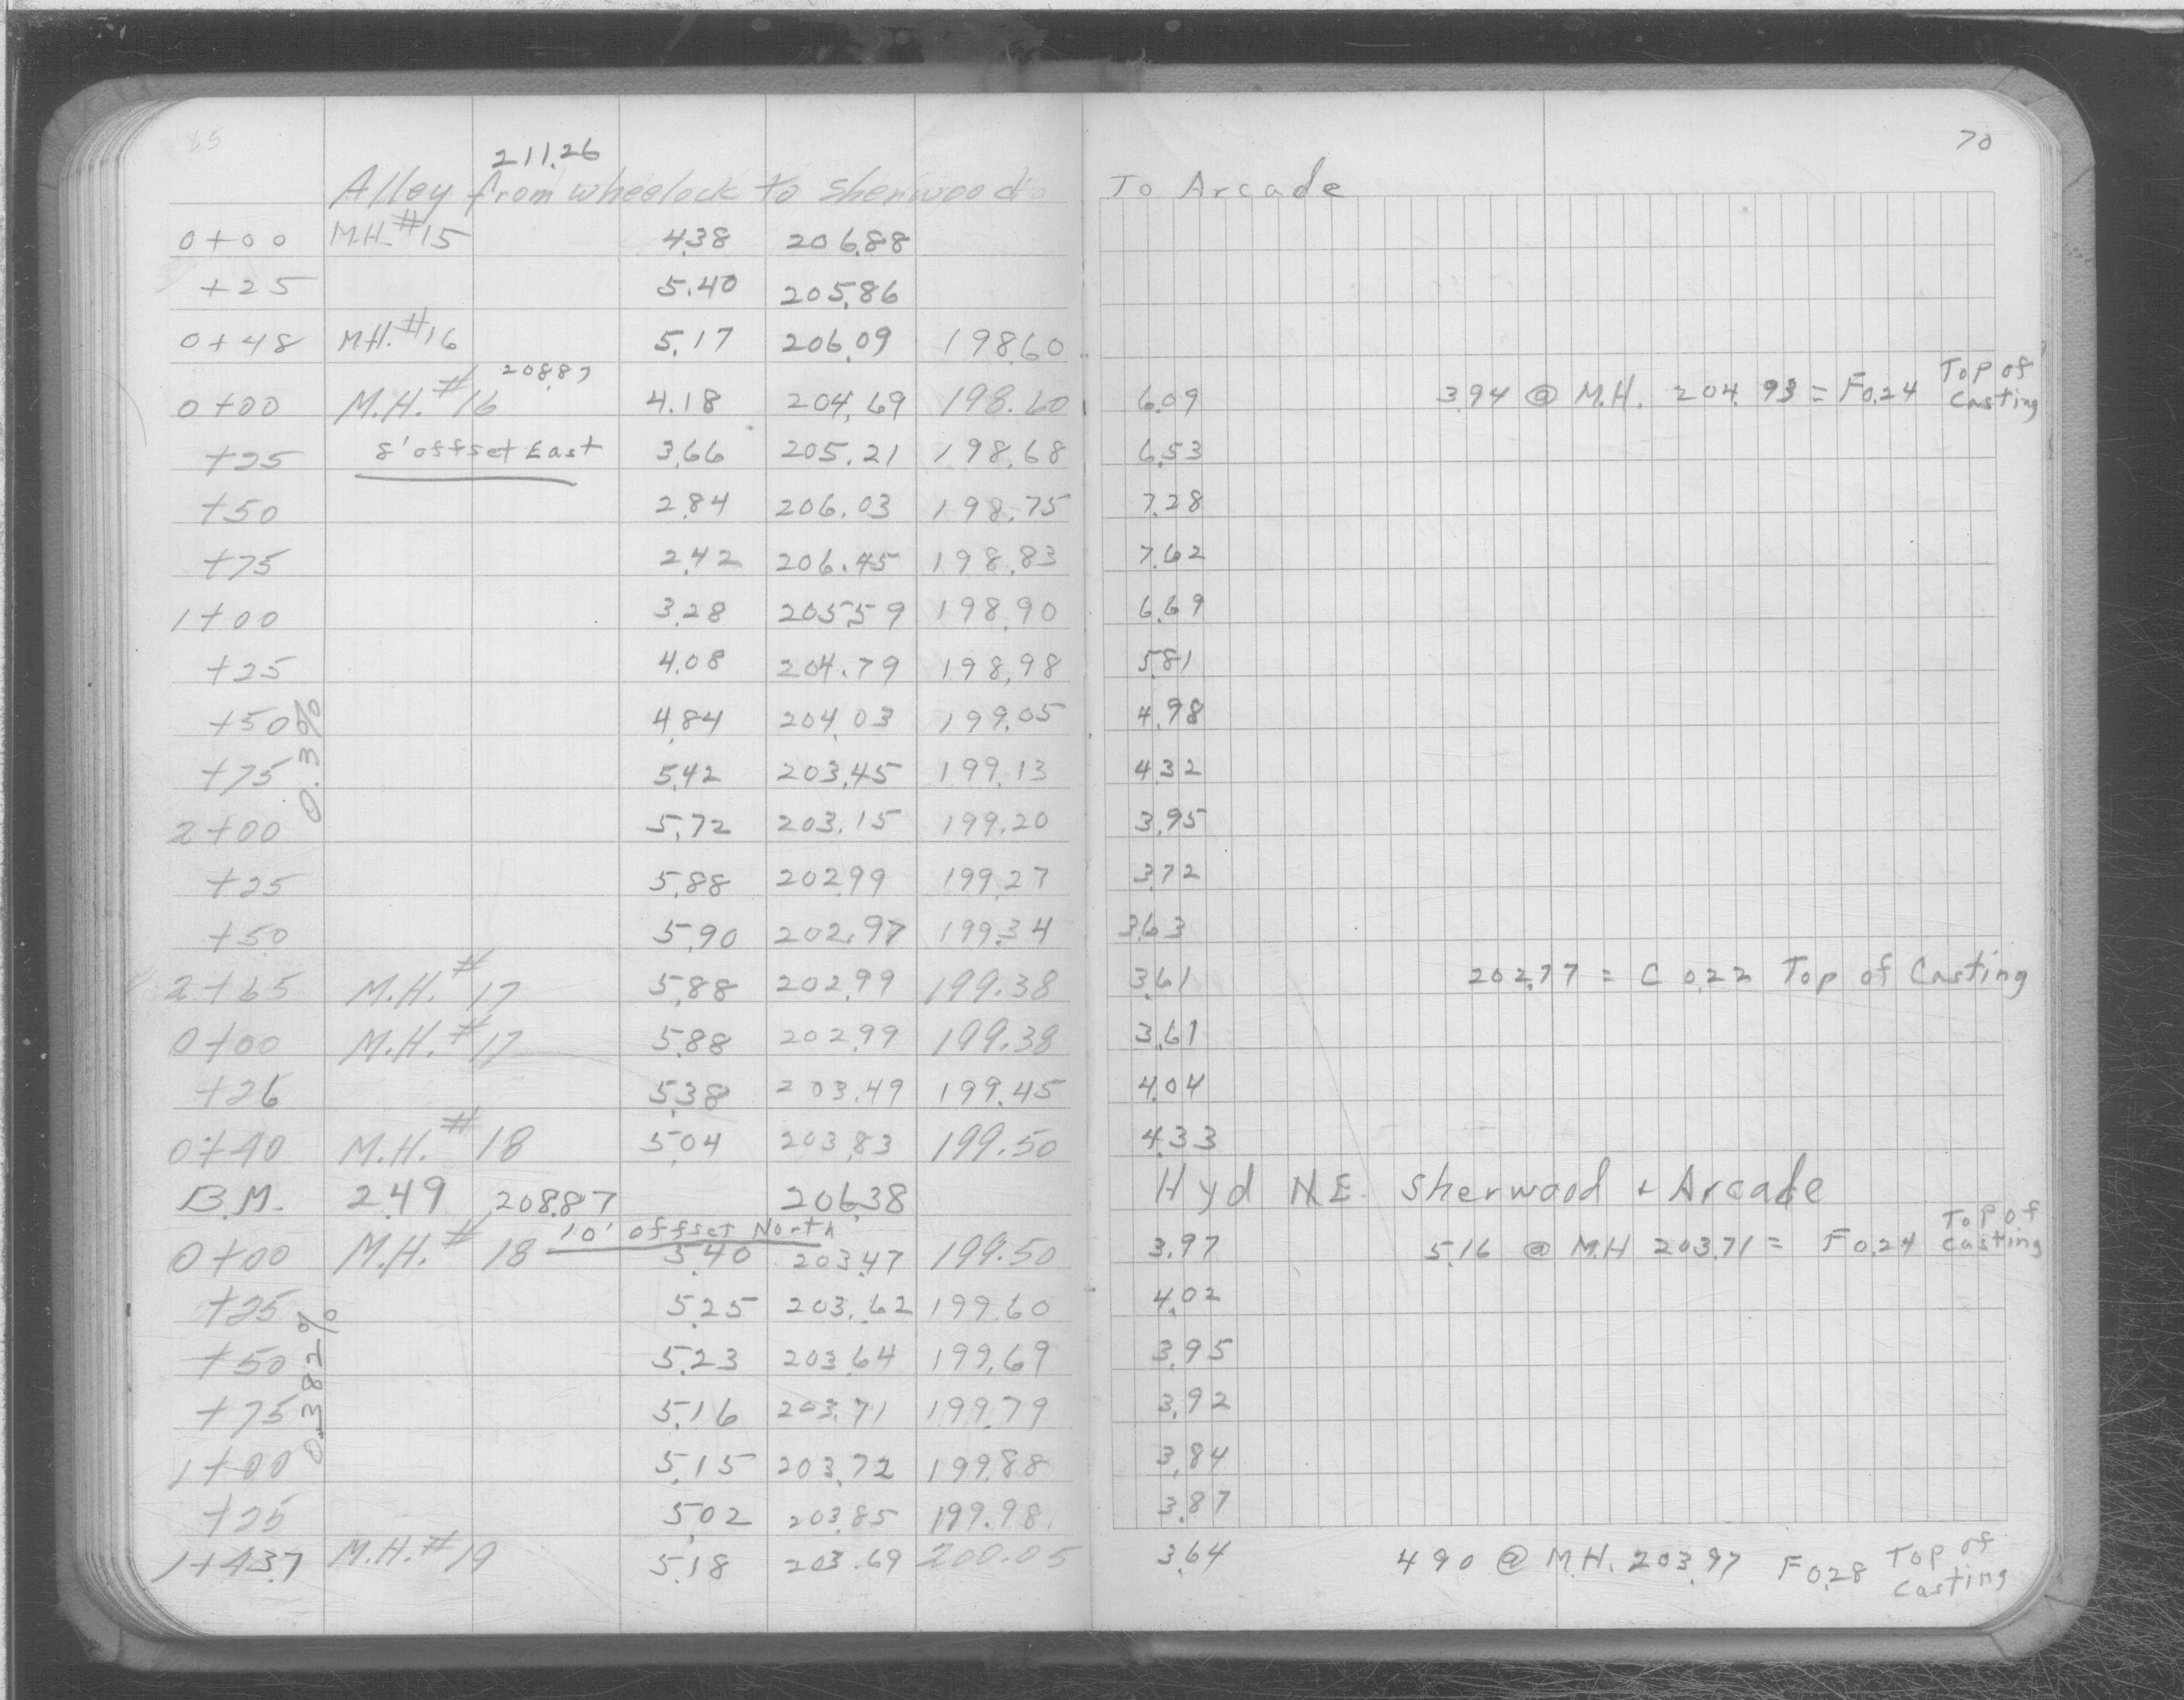 70
211.26
Alley from wheelock to sherwood To Arcade
0+00 M.H. #15 4.38 206.88
+25 5.40 205.86
0+48 M.H. #16 5.17 206.09 198.60
208.87
0+00 M.H. #16 4.18 204.69 198.60 6.09 3.94 @ M.H. 204.93 = F0.24 Top of Casting
+25 8' offset East 3.66 205.21 198.68 6.53
+50 2.84 206.03 198.75 7.28
+75 2.42 206.45 198.83 7.62
1+00 3.28 205.59 198.90 6.69
+25 4.08 204.79 198.98 5.81
+50 4.84 204.03 199.05 4.98
0.3%
+75 5.42 203.45 199.13 4.32
2+00 5.72 203.15 199.20 3.95
+25 5.88 202.99 199.27 3.72
+50 5.90 202.97 199.34 3.63
2+65 M.H. #17 5.88 202.99 199.38 3.61 202.77 = C 0.22 Top of Casting
0+00 M.H. #17 5.88 202.99 199.38 3.61
+26 5.38 203.49 199.45 4.04
0+40 M.H. #18 5.04 203.83 199.50 4.33
B.M. 2.49 208.87 206.38 Hyd N.E. Sherwood + Arcade
10' offset North
0+00 M.H. #18 5.40 203.47 199.50 3.97 5.16 @ M.H 203.71 = F0.24 Top of Casting
+25 5.25 203.62 199.60 4.02
+50 5.23 203.64 199.69 3.95
0.382%
+75 5.16 203.71 199.79 3.92
1+00 5.15 203.72 199.88 3.84
+25 5.02 203.85 199.98 3.87
1+43.7 M.H. #19 5.18 203.69 200.05 3.64 4.90 @ M.H. 203.97 F0.28 Top of Casting